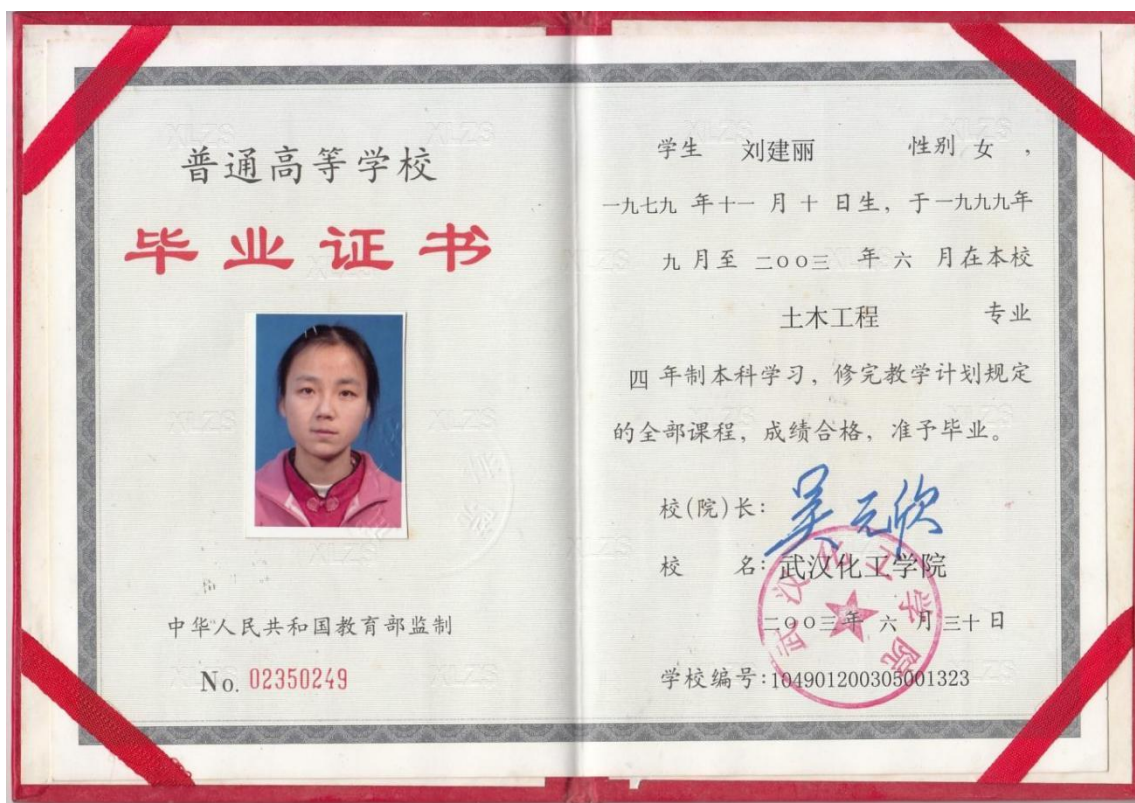 普通高等学校
毕业证书
中华人民共和国教育部监制
No. 02350249
学生 刘建丽 性别 女，
一九七九 年十一 月 十 日生，于一九九九年
九 月至 二〇〇三 年 六 月在本校
土木工程 专业
四 年制本科学习，修完教学计划规定
的全部课程，成绩合格，准予毕业。
校(院)长：吴元欣
校 名：武汉化工学院
二〇〇三年 六 月 三十 日
学校编号：104901200305001323
武汉化工学院
XLZS